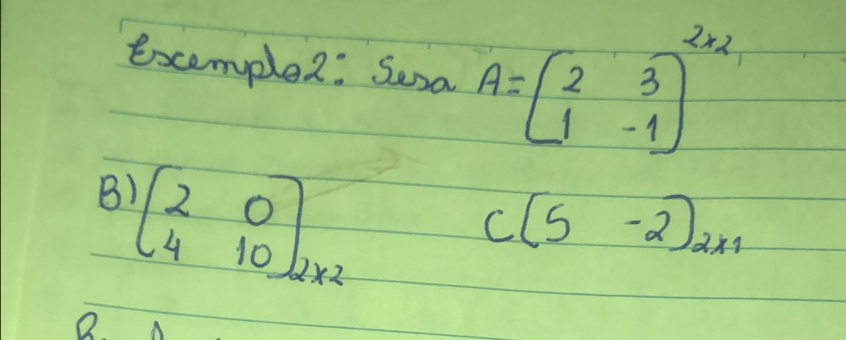 Excemplo2: Seja A= [2 3
1 -1] 2x2
B) [2 0
4 10] 2x2
C [5 -2] 2x1